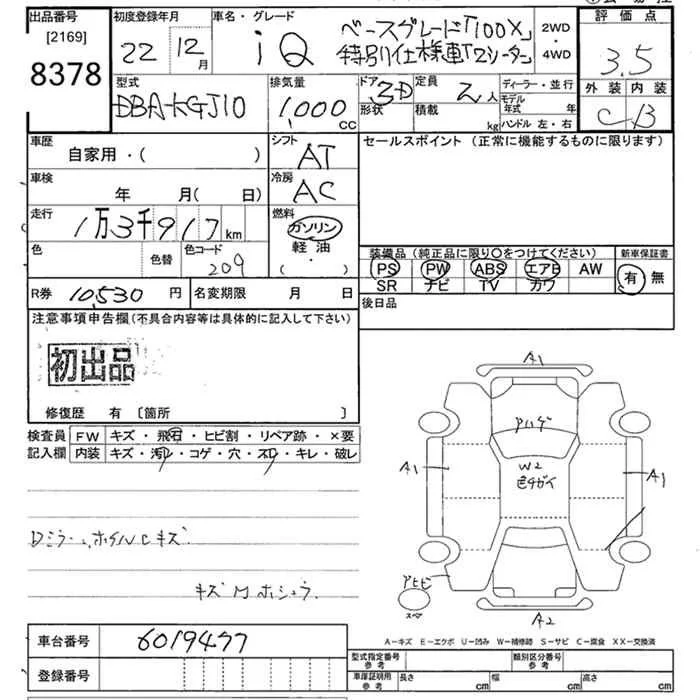 出品番号 初度登録年月 車名・グレード 評価点
[2169]
8378
22 12月 iQ ベースグレード「100X」 2WD
特別仕様車「2シーター」 4WD
3.5
外装 内装
C B
型式 排気量 ドア 定員 ディーラー・並行
DBA-KGJ10 1,000 CC 3D 形状 2人 積載 kg モデル年式 年 ハンドル 左・右
車歴 シフト セールスポイント(正常に機能するものに限ります)
自家用・( ) AT
車検 冷房
年 月(日) AC
走行 燃料
1万3千917km ガソリン
軽油
・
色 色替 色コード
209
装備品(純正品に限り○をつけてください) 新車保証書
PS PW ABS エアB AW 有 無
SR ナビ TV カワ
R券 10,530 円 名変期限 月 日
後日品
注意事項申告欄(不具合内容等は具体的に記入して下さい)
初出品
修復歴 有 [箇所 ]
検査員 FW キズ・飛石・ヒビ割・リペア跡・×要
記入欄 内装 キズ・汚レ・コゲ・穴・スレ・キレ・破レ
Dミラー、ホイルCキズ
キズMホシュウ.
A1
Pハゲ
A1
W2
色チガイ
A1
Aヒビ
スペア
A2
A−キズ E−エクボ U−凹み W−補修跡 S−サビ C−腐食 XX−交換済
車台番号 6019477
登録番号
型式指定番号 参考 類別区分番号 参考
車庫証明用 参考 長さ cm 幅 cm 高さ cm